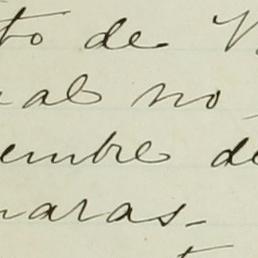 to de
al no
embre de
maras-